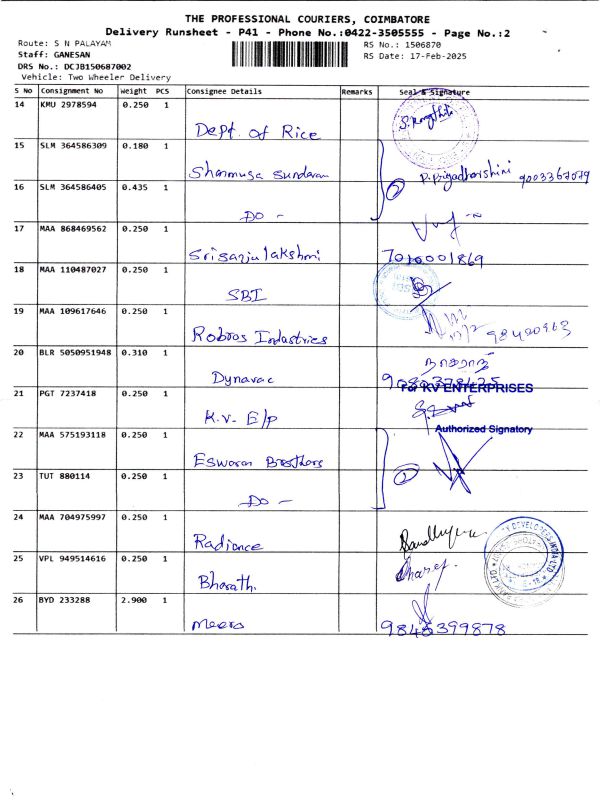 THE PROFESSIONAL COURIERS, COIMBATORE
Delivery Runsheet - P41 - Phone No.:0422-3505555 - Page No.:2
Route: S N PALAYAM
RS No.: 1506870
Staff: GANESAN
RS Date: 17-Feb-2025
DRS No.: DCJB150687002
Vehicle: Two Wheeler Delivery
S No Consignment No Weight PCS Consignee Details Remarks Seal & Signature
14 KMU 2978594 0.250 1
Dept. of Rice
15 SLM 364586309 0.180 1
Shanmuga Sundaram
P. Priyadharshini 9003367079
16 SLM 364586405 0.435 1
2
DO -
17 MAA 868469562 0.250 1
7010001869
18 MAA 110487027 0.250 1
SBI
19 MAA 109617646 0.250 1
Robros Industries
20 BLR 5050951948 0.310 1
நாகராஜ்
Dynavac
21 PGT 7237418 0.250 1
For KV ENTERPRISES
K.V. E/P
Authorized Signatory
22 MAA 575193118 0.250 1
Eswaran Brothers
23 TUT 880114 0.250 1
2
DO -
24 MAA 704975997 0.250 1
Radiance
25 VPL 949514616 0.250 1
Bharath.
26 BYD 233288 2.900 1
Meera
9845399878